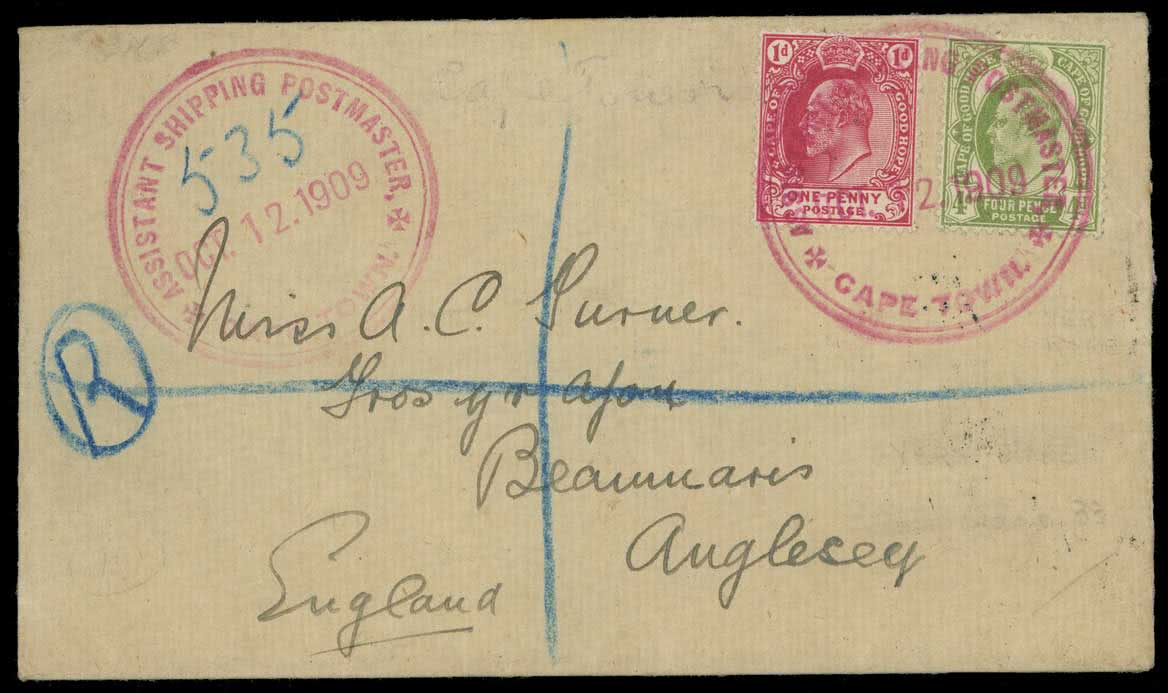 ASSISTANT SHIPPING POSTMASTER,
535
OCT. 12.1909
TOWN.
1d 1d
CAPE OF GOOD HOPE
ONE PENNY
POSTAGE
CAPE OF GOOD HOPE CAPE OF GOOD HOPE
4d FOUR PENCE 4d
POSTAGE
OSTMASTER
2.1909
CAPE TOWN.
R
Miss A. C. Turner.
Tros yr Afon
Beaumaris
Anglesey
England